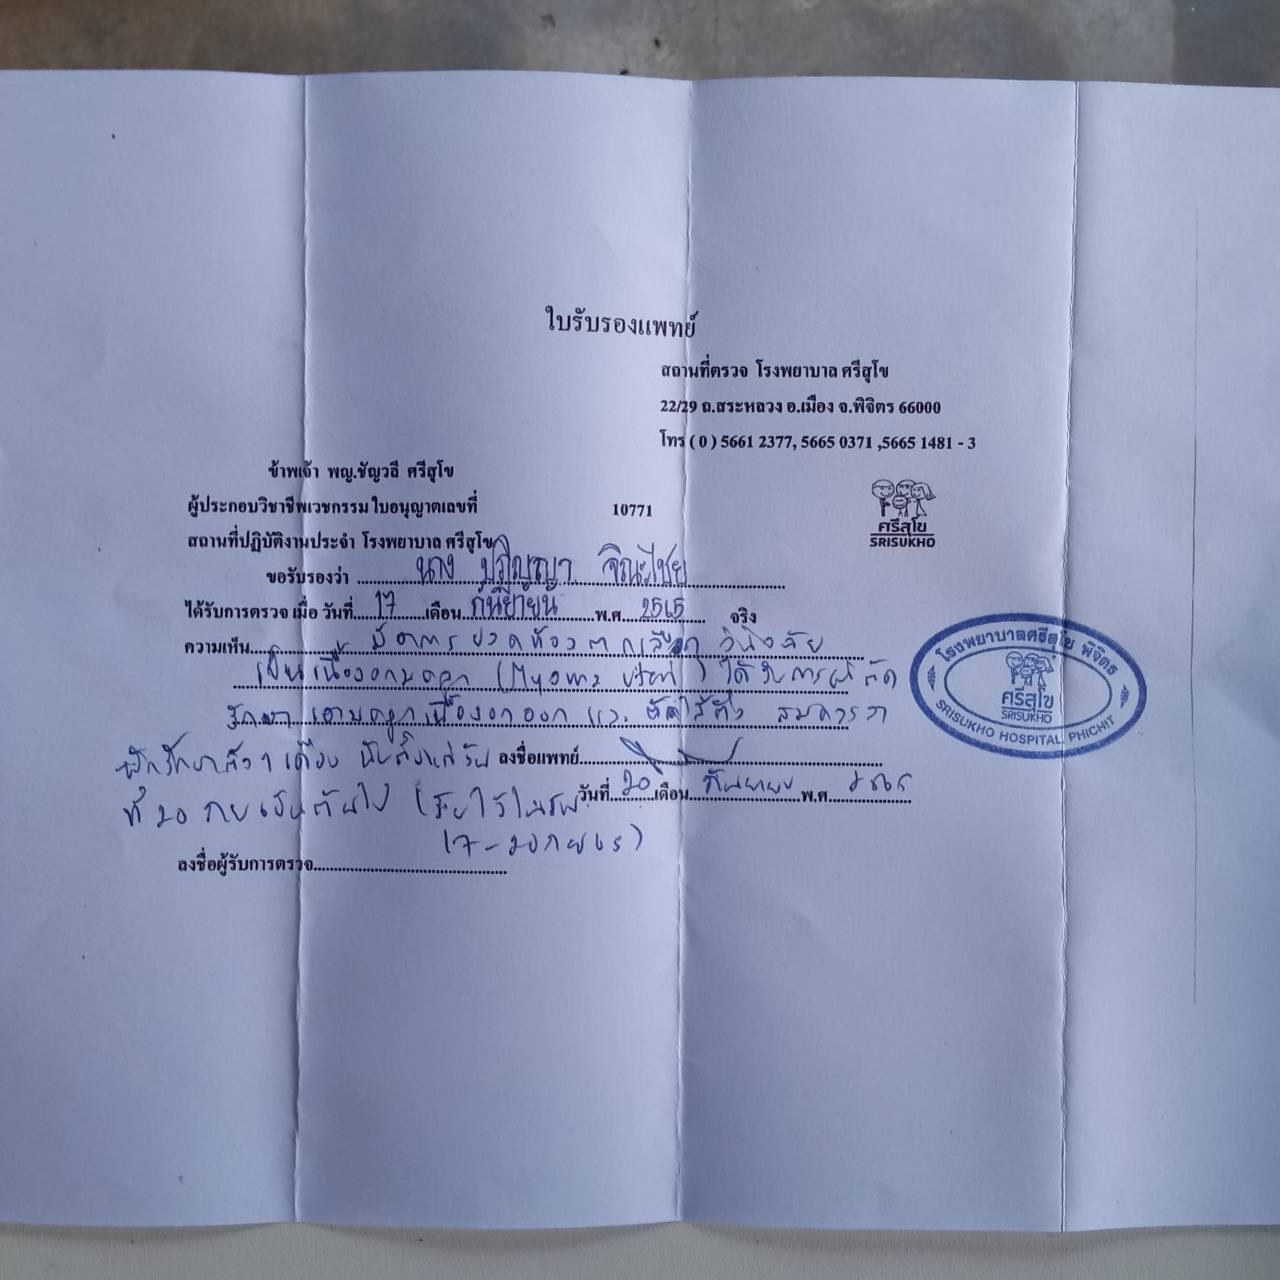 ใบรับรองแพทย์
สถานที่ตรวจ โรงพยาบาล ศรีสุโข
22/29 ถ.สระหลวง อ.เมือง จ.พิจิตร 66000
โทร ( 0 ) 5661 2377, 5665 0371 ,5665 1481 - 3
ข้าพเจ้า พญ.ชัญวลี ศรีสุโข
ผู้ประกอบวิชาชีพเวชกรรม ใบอนุญาตเลขที่ 10771
สถานที่ปฏิบัติงานประจำ โรงพยาบาล ศรีสุโข
ศรีสุโข
SRISUKHO
ขอรับรองว่า นาง
ได้รับการตรวจ เมื่อ วันที่ 17 เดือน กันยายน พ.ศ 2565 จริง
ความเห็น มีอาการปวดท้อง ตกเลือด วินิจฉัย
เป็นเนื้องอกมดลูก (Myoma uteri) ได้รับการผ่าตัด
รักษา เอามดลูกเนื้องอกออก และ ตัดไส้ติ่ง สมควรลา
พักรักษาตัว 1 เดือน นับตั้งแต่วัน ลงชื่อแพทย์
ที่ 20 กย เป็นต้นไป วันที่ 20 เดือน กันยายน พ.ศ 2565
17-20 กย 65)
ลงชื่อผู้รับการตรวจ
โรงพยาบาลศรีสุโข พิจิตร
ศรีสุโข
SRISUKHO
SRISUKHO HOSPITAL PHICHIT